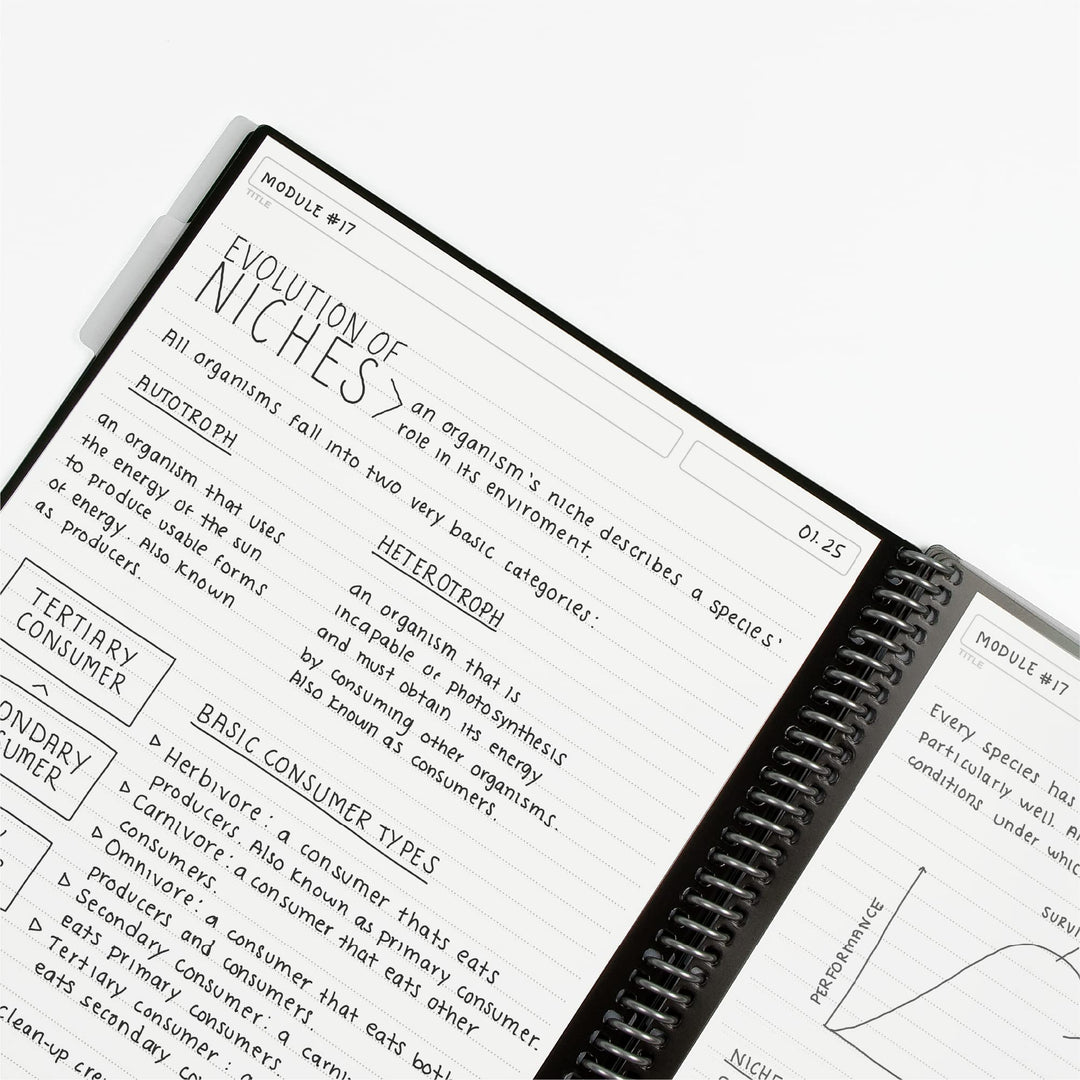 MODULE #17
TITLE
01.25
EVOLUTION OF
NICHES
an organism's niche describes a species'
role in its enviroment.
All organisms fall into two very basic categories:
AUTOTROPH
an organism that uses
the energy of the sun
to produce usable forms
of energy. Also known
as producers.
HETEROTROPH
an organism that is
incapable of photosynthesis
and must obtain its energy
by consuming other organisms.
Also known as consumers.
TERTIARY
CONSUMER
BASIC CONSUMER TYPES
Herbivore: a consumer thats eats
producers. Also known as primary consumer.
Carnivore: a consumer that eats other
consumers.
Omnivore: a consumer that eats both
producers and consumers.
Secondary consumer: a
eats primary consumers.
Tertiary consumer: a
eats secondary
Clean-up
MODULE #17
TITLE
Every species has
particularly well.
conditions under
PERFORMANCE